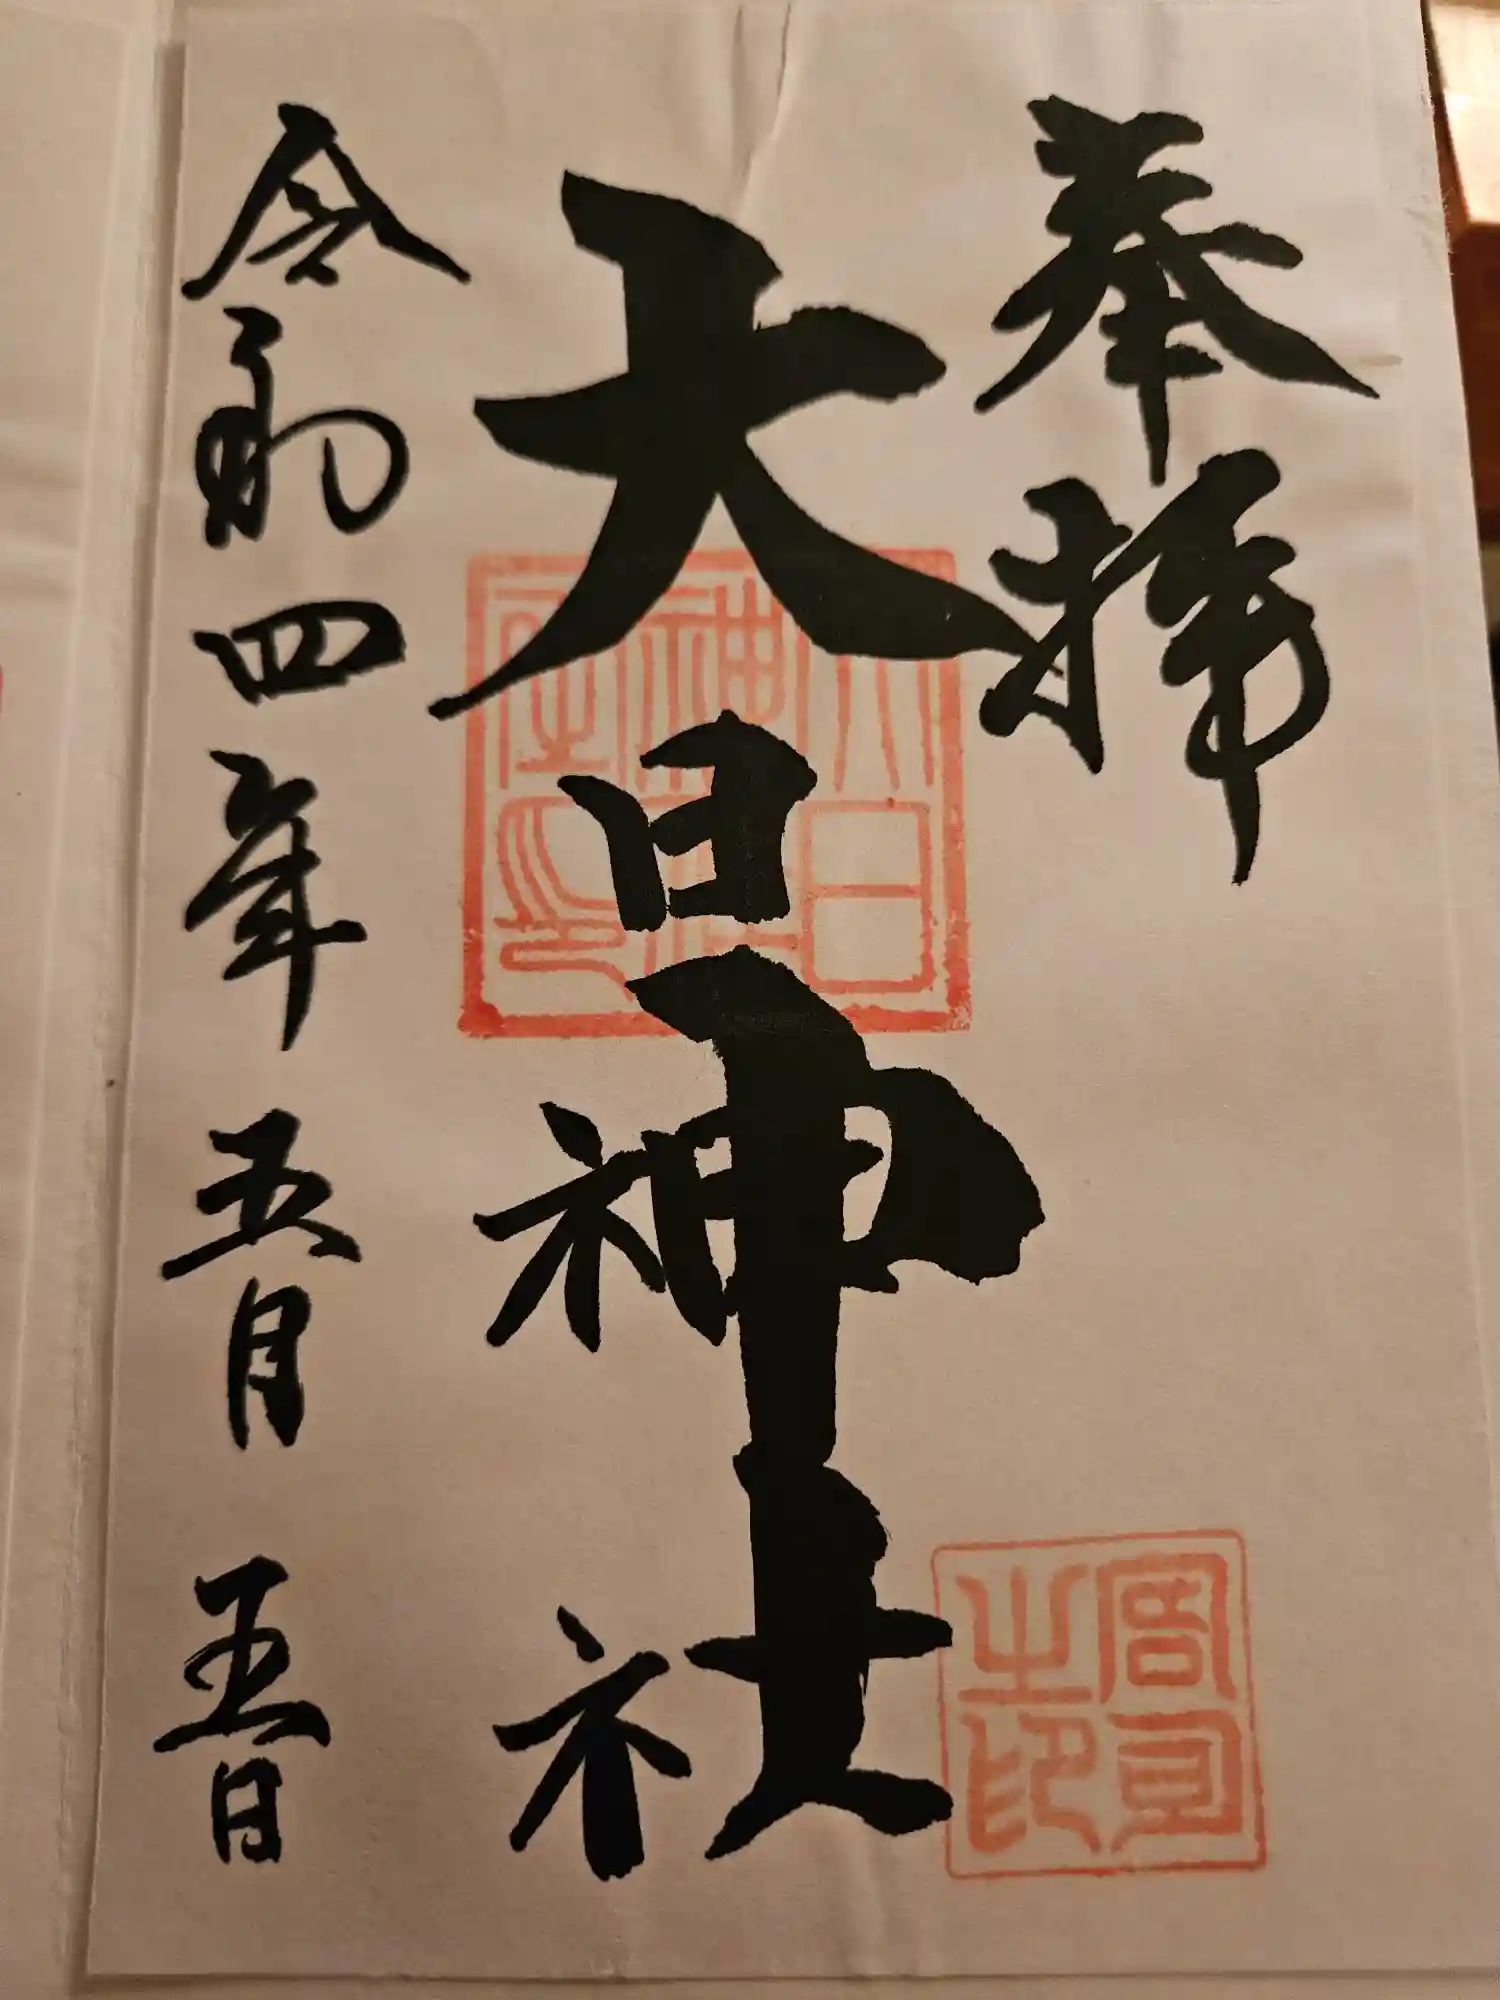 奉拝
大日神社
令和四年五月五日
大日
神社
之印
宮司
之印